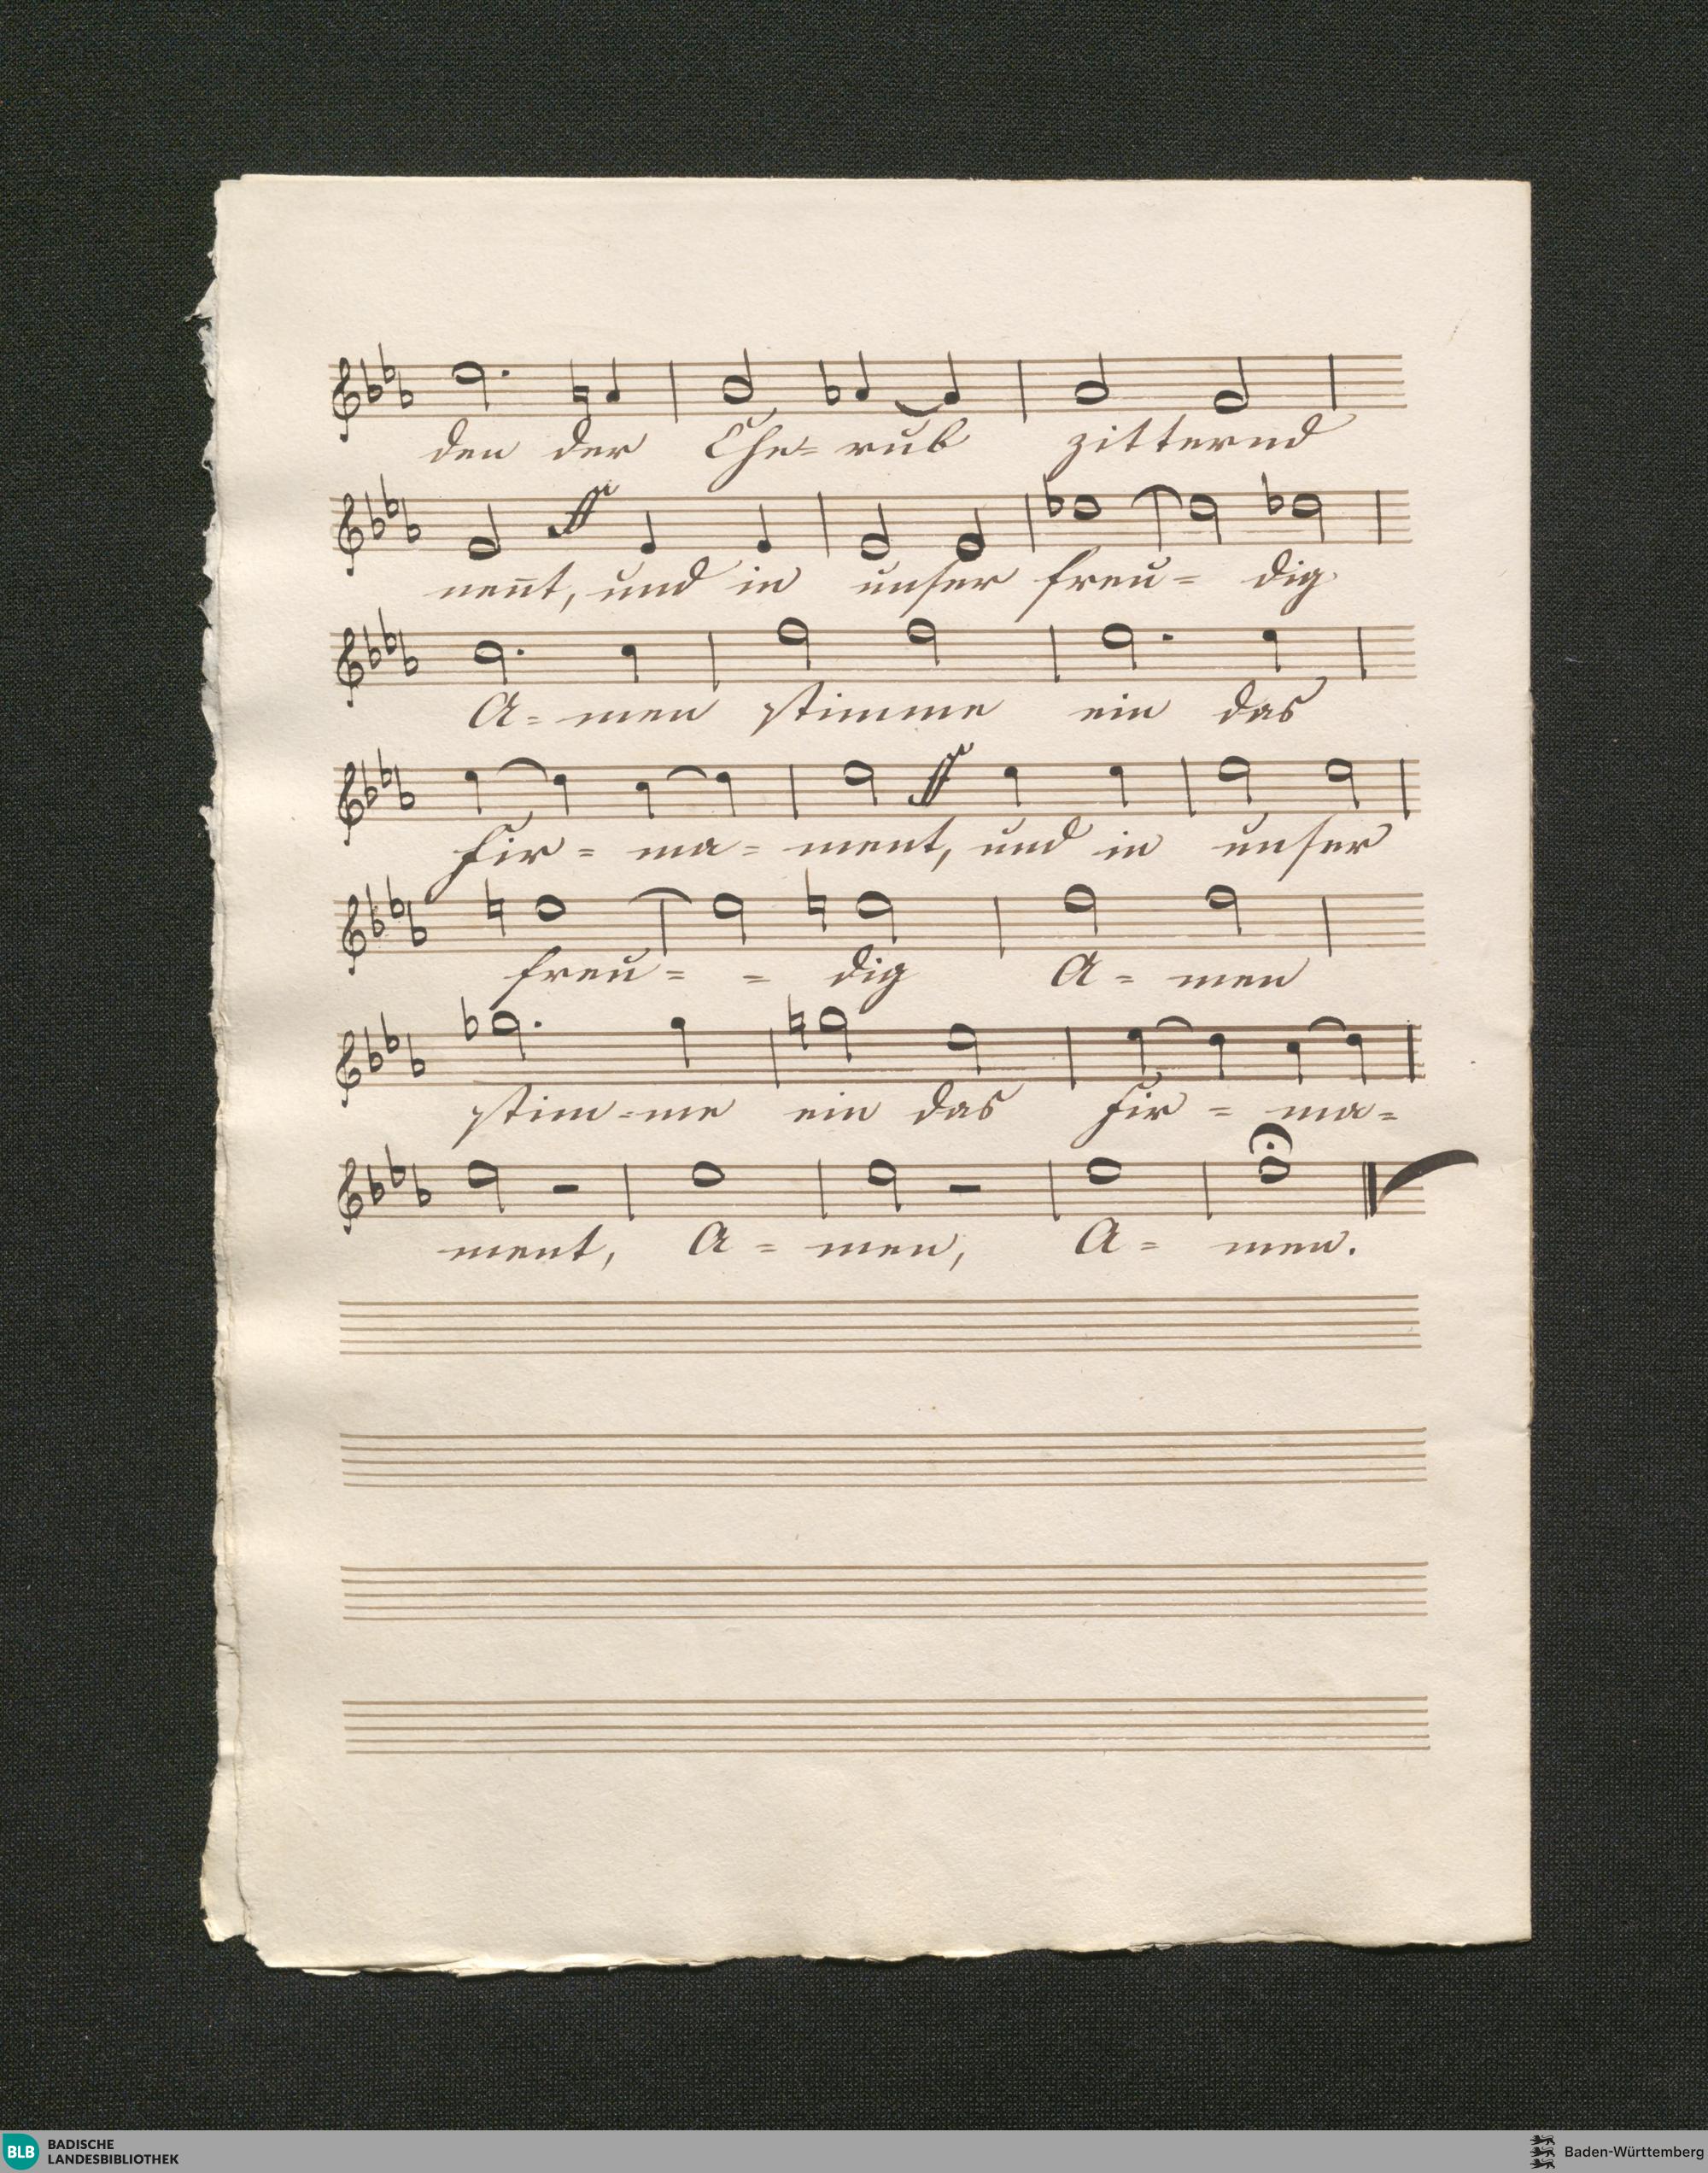 den der Che= rub zitternd
ff
nen̄t, und in unser freu= dig
A= men stimme ein das
ff
Fir= ma= ment, und in unser
freu= = dig A= men
stim=me ein das Fir= ma=
ment, A= men, A= men.
BLB BADISCHE
LANDESBIBLIOTHEK
Baden-Württemberg